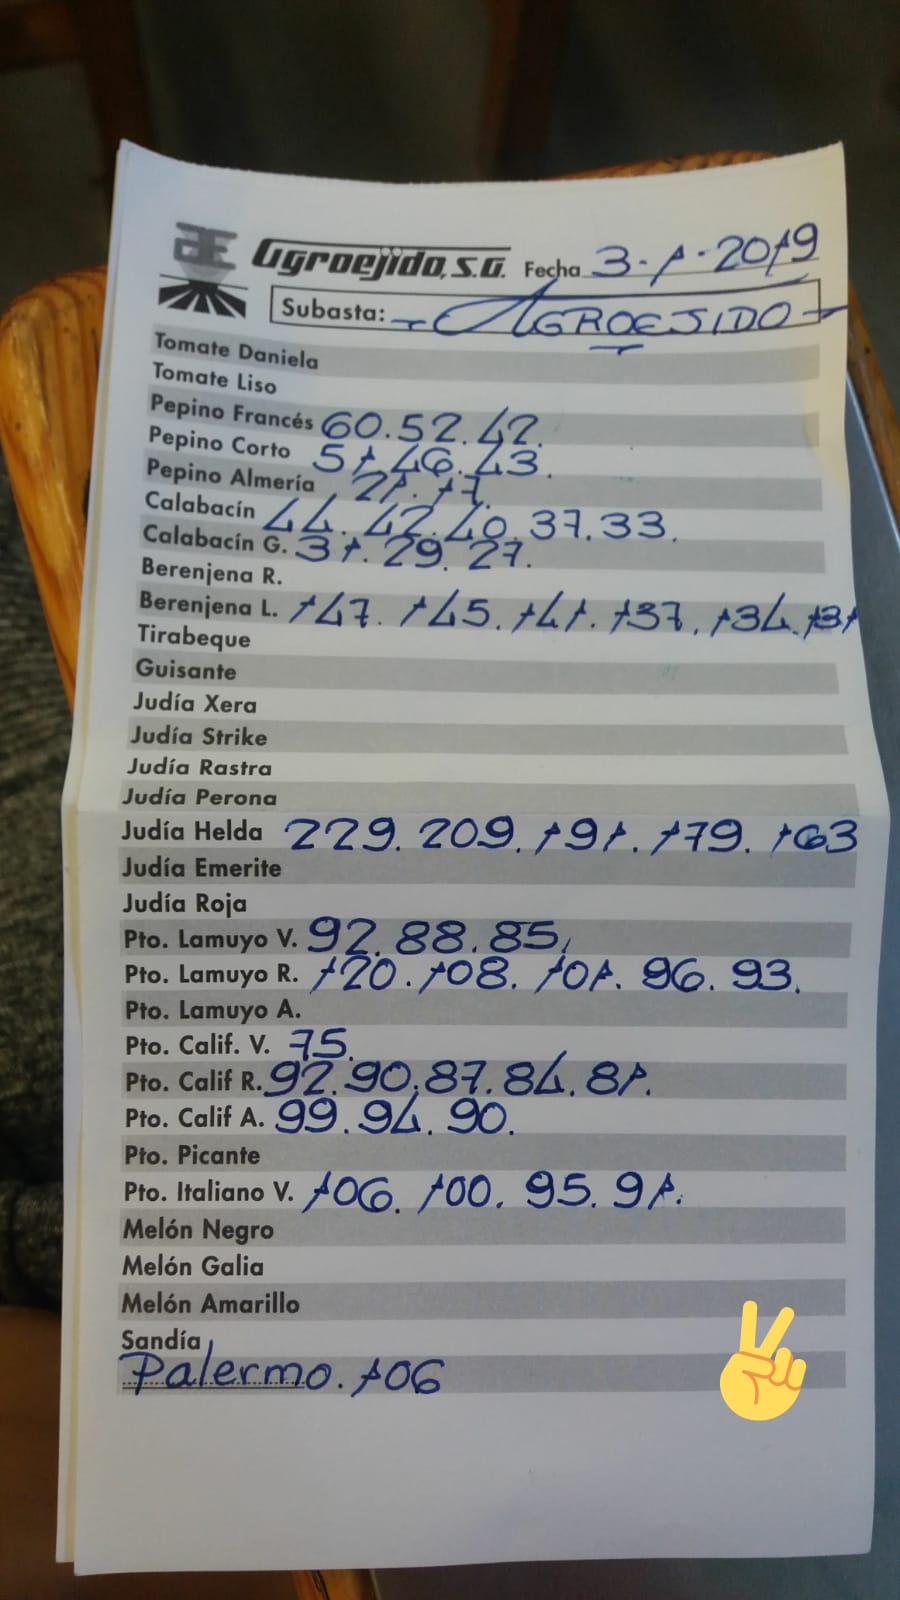 Agroejido, S.A. Fecha 3-1-2019
Subasta: AGROEJIDO
Tomate Daniela
Tomate Liso
Pepino Francés 60. 52. 42.
Pepino Corto 51. 46. 43.
Pepino Almería 21. 17.
Calabacín 44. 42. 40. 37. 33.
Calabacín G. 31. 29. 27.
Berenjena R.
Berenjena L. 147. 145. 141. 137. 134. 131
Tirabeque
Guisante
Judía Xera
Judía Strike
Judía Rastra
Judía Perona
Judía Helda 229. 209. 191. 179. 163
Judía Emerite
Judía Roja
Pto. Lamuyo V. 92. 88. 85.
Pto. Lamuyo R. 120. 108. 101. 96. 93.
Pto. Lamuyo A.
Pto. Calif. V. 75.
Pto. Calif R. 92. 90. 87. 84. 81.
Pto. Calif A. 99. 94. 90.
Pto. Picante
Pto. Italiano V. 106. 100. 95. 91.
Melón Negro
Melón Galia
Melón Amarillo
Sandía
Palermo. 106